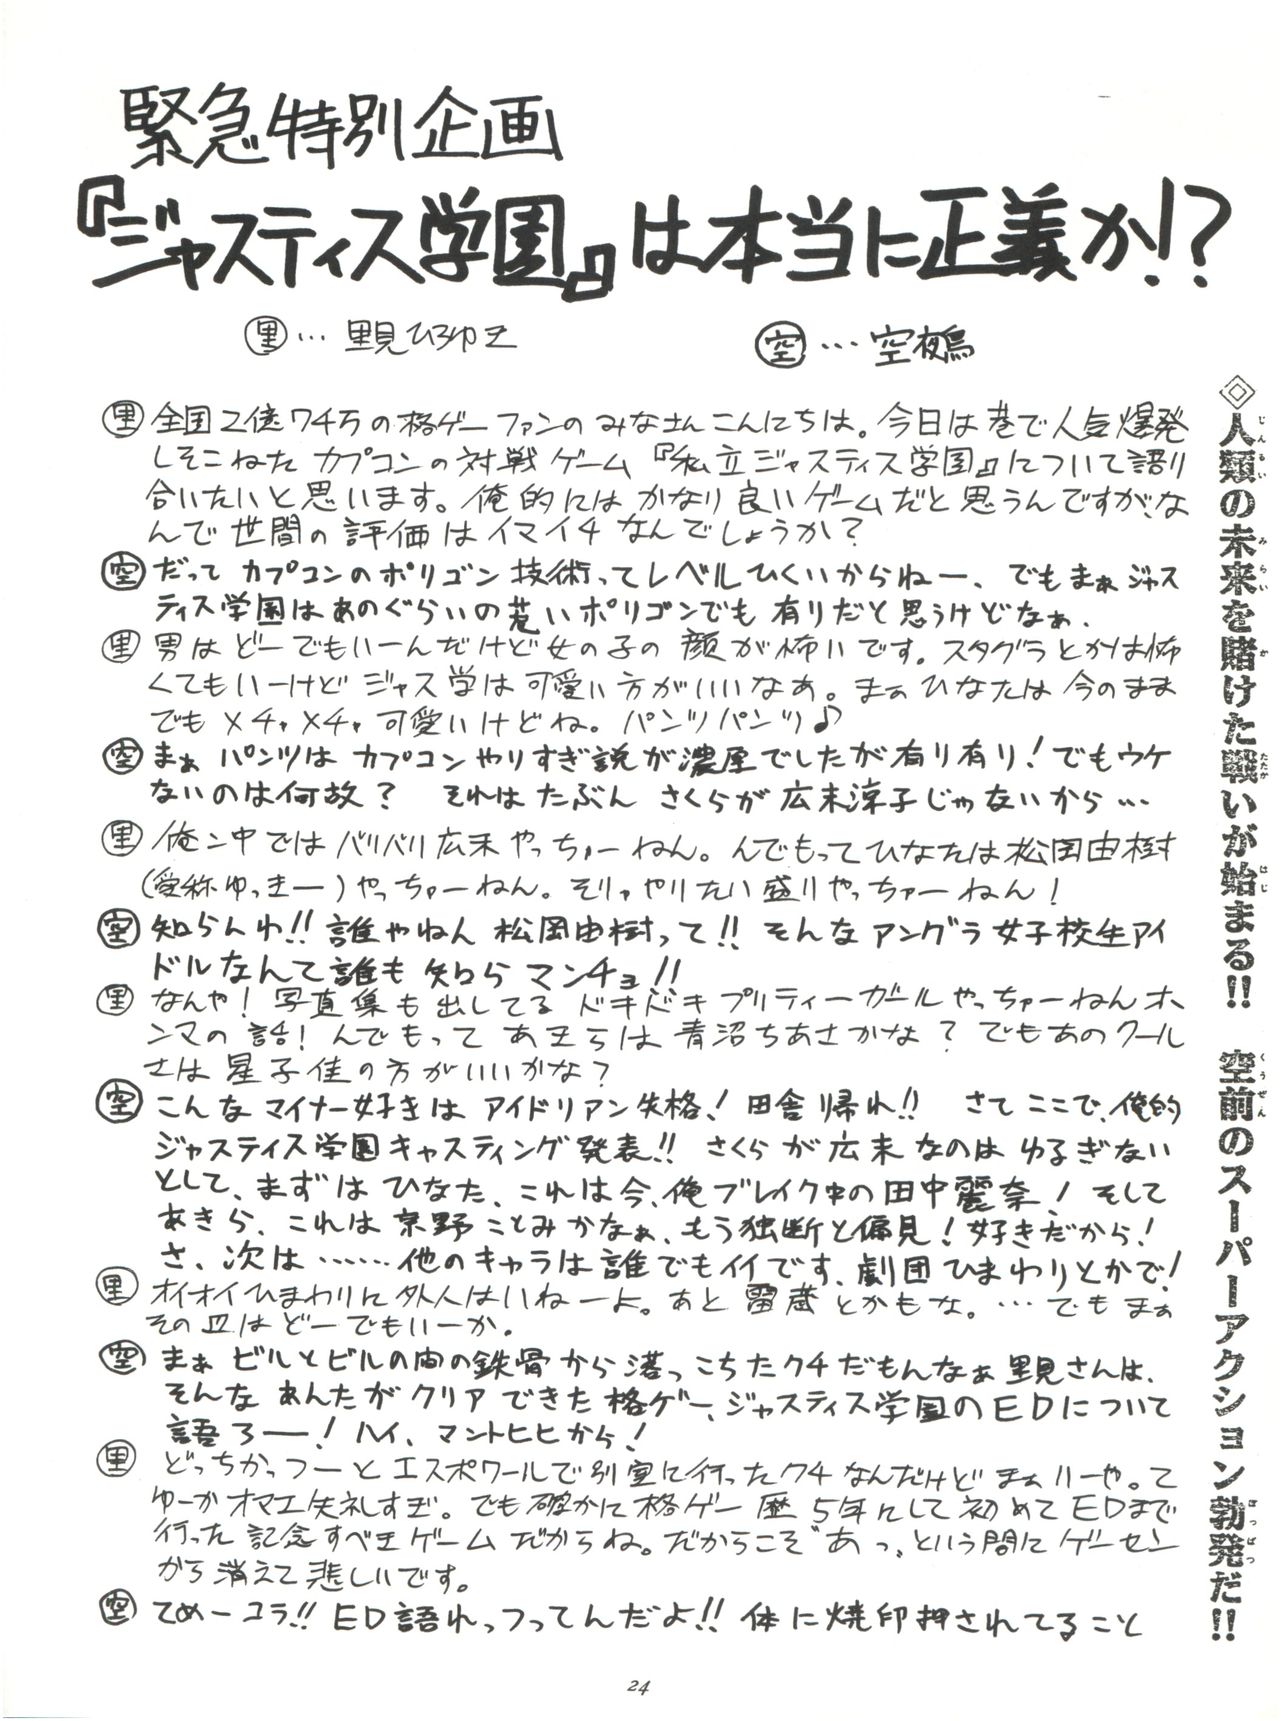 緊急特別企画
『ジャスティス学園』は本当に正義か!?
里…里見ひろゆき
空…空夜鳥
里 全国2億7千万の格ゲーファンのみなさんこんにちは。今日は巷で人気爆発
しそこねたカプコンの対戦ゲーム『私立ジャスティス学園』について語り
合いたいと思います。俺的にはかなり良いゲームだと思うんですが、な
んで世間の評価はイマイチなんでしょうか?
空 だってカプコンのポリゴン技術ってレベルひくいからねー、でもまぁジャス
ティス学園はあのぐらいの荒いポリゴンでも有りだと思うけどなぁ、
里 男はどーでもいーんだけど女の子の顔が怖いです。スタグラとかは怖
くてもいーけどジャス学は可愛い方がいいなあ。まぁひなたは今のまま
でもメチャメチャ可愛いけどね。パンツパンツ♪
空 まぁパンツはカプコンやりすぎ説が濃厚でしたが有り有り!でもウケ
ないのは何故?それはたぶんさくらが広末涼子じゃないから…
里 俺ン中ではバリバリ広末やっちゅーねん。んでもってひなたは松岡由樹
(愛称ゆっきー)やっちゅーねん。そりゃやりたい盛りやっちゅーねん!
空 知らんわ!!誰やねん松岡由樹って!!そんなアングラ女子校生アイ
ドルなんて誰も知らマンチョ!!
里 なんや!写真集も出してるドキドキプリティーガールやっちゅーねんホ
ンマの話!んでもってあきらは青沼ちあさかな?でもあのクール
さは星子佳の方がいいかな?
空 こんなマイナー好きはアイドリアン失格!田舎帰れ!!さてここで、俺的
ジャスティス学園キャスティング発表!!さくらが広末なのはゆるぎない
として、まずはひなた、これは今、俺ブレイク中の田中麗奈!そして
あきら、これは京野ことみかなぁ、もう独断と偏見!好きだから!
さ、次は……他のキャラは誰でもイイです、劇団ひまわりとかで!
里 オイオイひまわりに外人はいねーよ。あと雷蔵とかもな。…でもまぁ
その辺はどーでもいーか。
空 まぁビルとビルの間の鉄骨から落っこちたクチだもんなぁ里見さんは、
そんなあんたがクリアできた格ゲー、ジャスティス学園のEDについて
語ろー!ハイ、マントヒヒから!
里 どっちかっつーとエスポワールで別室に行ったクチなんだけどまぁいーや。て
ゆーかオマエ失礼すぎ。でも確かに格ゲー歴5年にして初めてEDまで
行った記念すべきゲームだからね。だからこそ“あっ”という間にゲーセン
から消えて悲しいです。
空 てめーコラ!!ED語れっつってんだよ!!体に焼印押されてること
◇人類の未来を賭けた戦いが始まる!!空前のスーパーアクション勃発だ!!
24